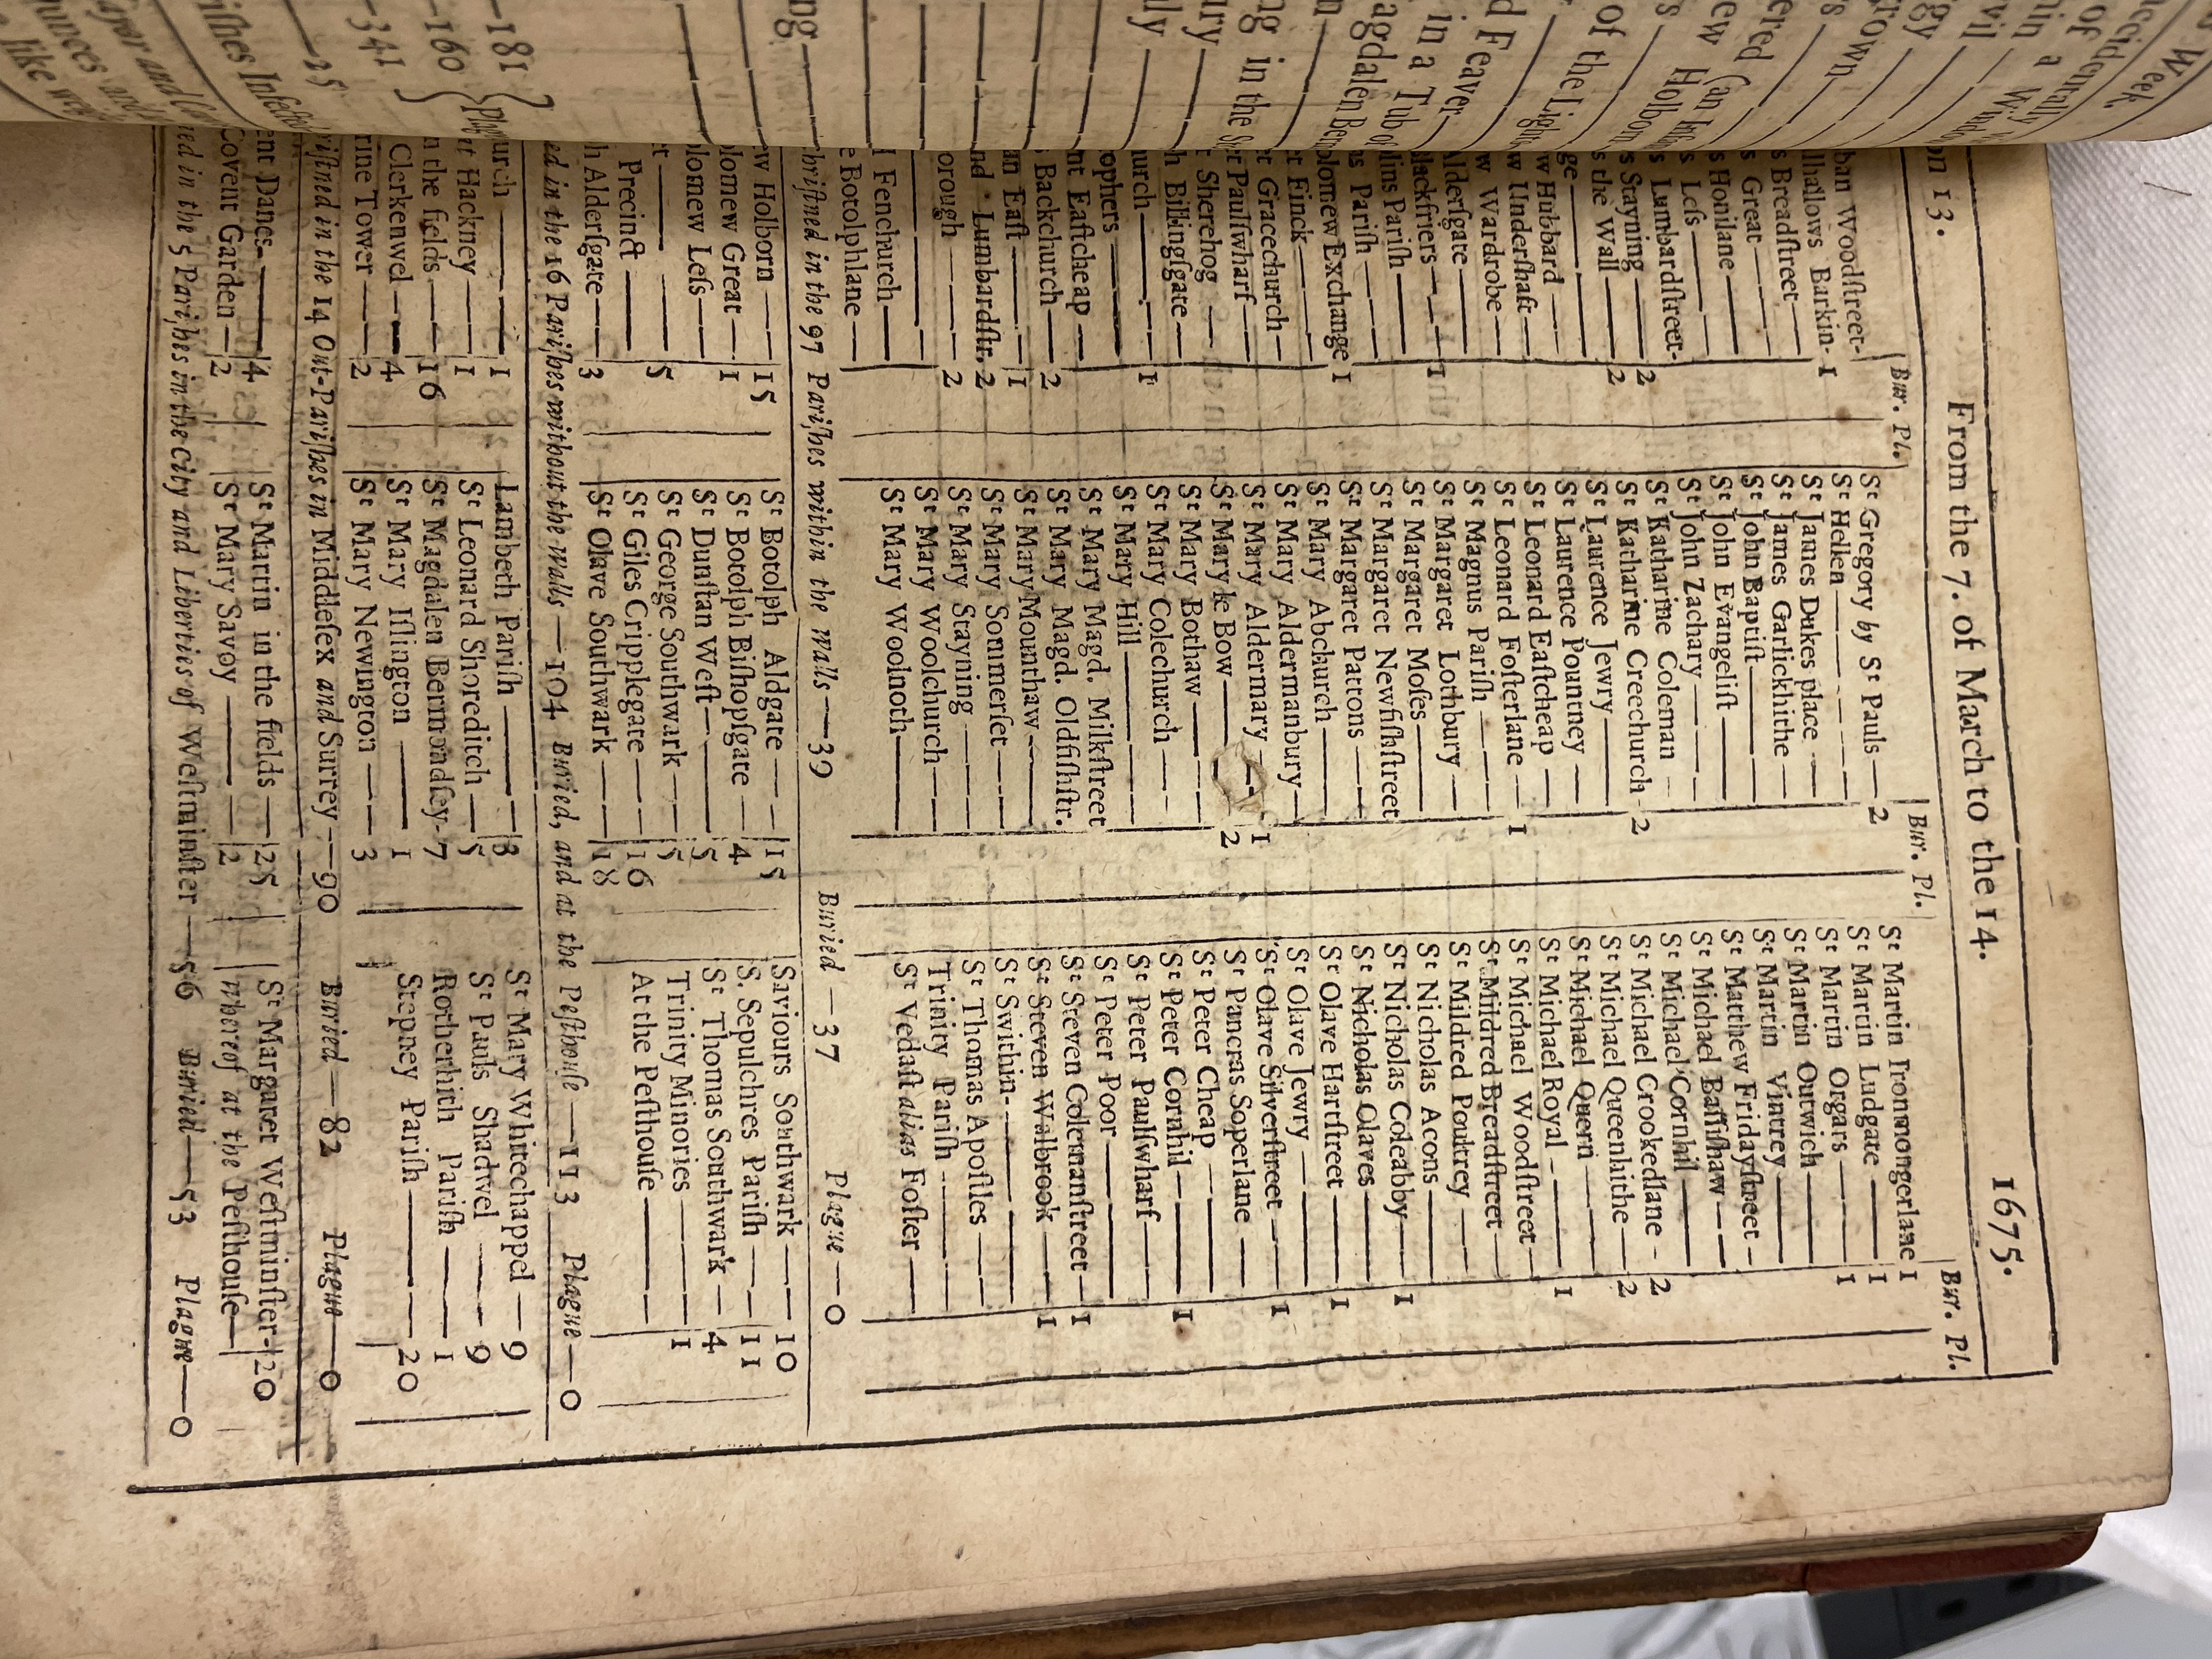 on 13. From the 7. of March to the 14. 1675.
Bur. Pl. Bur. Pl. Bur. Pl.
ban Woodſtreet- St Gregory by St Pauls — 2 St Martin Ironmongerlane 1
lhallows Barkin- 1 St Hellen — St Martin Ludgate — 1
s Breadſtreet — St James Dukes place — St Martin Orgars — 1
s Great — St James Garlickhithe — St Martin Outwich —
s Honilane — St John Baptiſt — St Martin Vintrey —
s Leſs — St John Evangeliſt — St Matthew Fridayſtreet —
s Lumbardſtreet- St John Zachary — St Michael Baſſiſhaw —
s Stayning — 2 St Katharine Coleman — St Michael Cornhil —
s the Wall — 2 St Katharine Creechurch - 2 St Michael Crookedlane - 2
ge — St Laurence Jewry — St Michael Queenhithe — 2
w Hubbard — St Laurence Pountney — St Michael Quern —
w Underſhaft — St Leonard Eaſtcheap — St Michael Royal — 1
w Wardrobe — St Leonard Foſterlane — 1 St Michael Woodſtreet —
Alderſgate — St Magnus Pariſh — St Mildred Breadſtreet —
lackfriers — 1 St Margaret Lothbury — St Mildred Poultrey —
s Pariſh — St Margaret Moſes — St Nicholas Acons —
lins Pariſh — St Margaret Newfiſhſtreet St Nicholas Coleabby — 1
olomew Exchange 1 St Margaret Pattons — St Nicholas Olaves —
t Finck — St Mary Abchurch — St Olave Hartſtreet — 1
t Gracechurch — St Mary Aldermanbury — St Olave Jewry —
t Paulſwharf — St Mary Aldermary — 1 St Olave Silverſtreet — 1
t Sherehog — St Mary le Bow — 2 St Pancras Soperlane —
h Billingſgate — St Mary Bothaw — St Peter Cheap —
urch — 1 St Mary Colechurch — St Peter Cornhil — 1
ophers — St Mary Hill — St Peter Paulſwharf —
nt Eaſtcheap — St Mary Magd. Milkſtreet St Peter Poor —
Backchurch — 2 St Mary Magd. Oldfiſhſtr. St Steven Colemanſtreet — 1
an Eaſt — 1 St Mary Mounthaw — St Steven Walbrook — 1
nd Lumbardſtr. 2 St Mary Sommerſet — St Swithin —
orough — 2 St Mary Stayning — St Thomas Apoſtles —
— St Mary Woolchurch — Trinity Pariſh —
l Fenchurch — St Mary Woolnoth — St Vedaſt alias Foſter —
e Botolphlane —
hriſtned in the 97 Pariſhes within the Walls — 39 Buried — 37 Plague — 0
w Holborn — 15 St Botolph Aldgate — 15 Saviours Southwark — 10
lomew Great — 1 St Botolph Biſhopſgate — 4 S. Sepulchres Pariſh — 11
olomew Leſs — St Dunſtan Weſt — 5 St Thomas Southwark — 4
t — 5 St George Southwark — 5 Trinity Minories — 1
Precinct — St Giles Cripplegate — 16 At the Peſthouſe —
h Alderſgate — 3 St Olave Southwark — 18
ed in the 16 Pariſhes without the Walls — 104 Buried, and at the Peſthouſe — 113 Plague — 0
urch — 1 Lambeth Pariſh — 8 St Mary Whitechappel — 9
at Hackney — 1 St Leonard Shoreditch — 5 St Pauls Shadwel — 9
n the fields — 16 St Magdalen Bermondſey - 7 Rotherhith Pariſh — 1
Clerkenwel — 4 St Mary Iſlington — 1 Stepney Pariſh — 20
rine Tower — 2 St Mary Newington — 3
riſtned in the 14 Out-Pariſhes in Middleſex and Surrey — 90 Buried — 82 Plague — 0
ent Danes — 4 St Martin in the fields — 25 St Margaret Weſtminſter - 20
Covent Garden — 2 St Mary Savoy — 2 whereof at the Peſthouſe —
ed in the 5 Pariſhes in the City and Liberties of Weſtminſter — 56 Buried — 53 Plague — 0
Week.
ccidentally
of a
hin
vil
rown
ered
ew Holborn
of the Light
d Feaver
in a Tub of
agdalen Ber
ng in the
ury
ly
ng
— 181
— 160
— 341
— 25
iſhes Infected
ayor and
ounces and
like